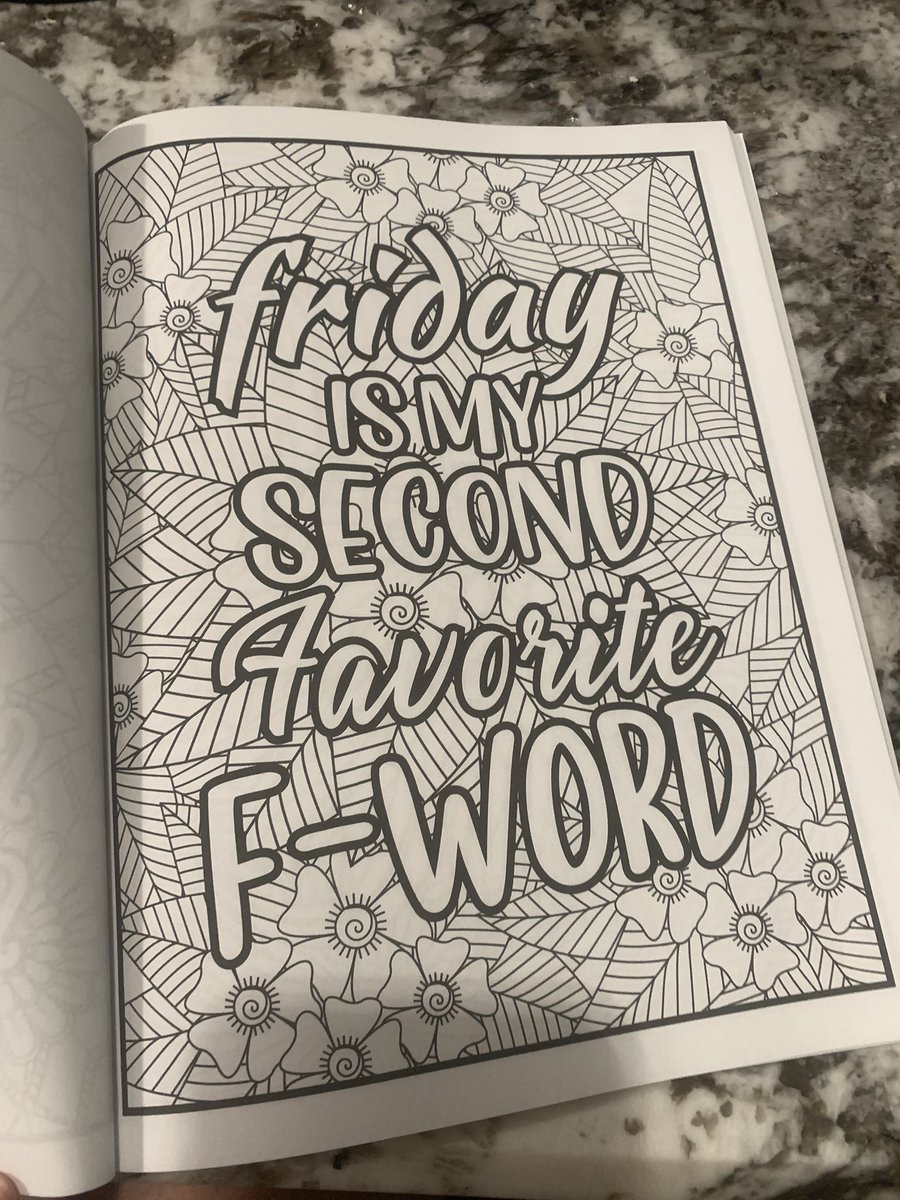 friday
IS MY
SECOND
Favorite
F-WORD